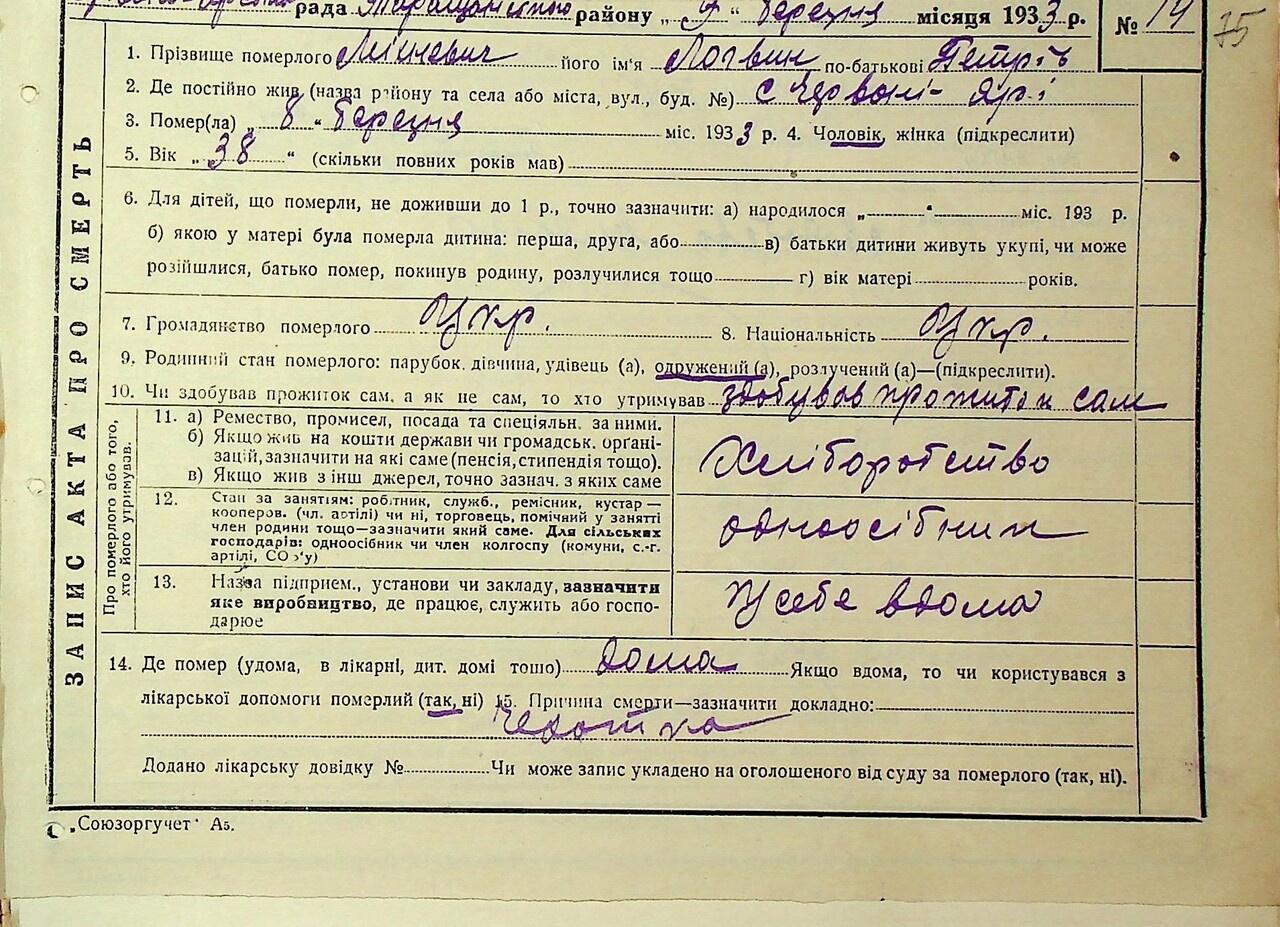 рада Таращанського району „ 9 “ березня місяця 1933 р.
№ 14
75
1. Прізвище померлого Мінчевич його ім'я Логвин по-батькові Петрів
2. Де постійно жив (назва району та села або міста, вул., буд. №) с Червоні- Ярі
3. Помер(ла) „ 8 “ березня міс. 1933 р. 4. Чоловік, жінка (підкреслити)
5. Вік „ 38 “ (скільки повних років мав)
6. Для дітей, що померли, не доживши до 1 р., точно зазначити: а) народилося „ “ міс. 193 р.
б) якою у матері була померла дитина: перша, друга, або в) батьки дитини живуть укупі, чи може
розійшлися, батько помер, покинув родину, розлучилися тощо г) вік матері років.
7. Громадянство померлого Укр. 8. Національність Укр.
9. Родинний стан померлого: парубок, дівчина, удівець (а), одружений (а), розлучений (а)—(підкреслити).
10. Чи здобував прожиток сам, а як не сам, то хто утримував здобував прожиток сам
ЗАПИС АКТА ПРО СМЕРТЬ
Про померлого або того,
хто його утримував.
11. а) Ремество, промисел, посада та спеціяльн. за ними.
б) Якщо жив на кошти держави чи громадськ. органі-
зацій, зазначити на які саме (пенсія, стипендія тощо).
в) Якщо жив з інш джерел, точно зазнач. з яких саме
Хліборобство
12. Стан за занятям: робітник, служб., ремісник, кустар—
кооперов. (чл. артілі) чи ні, торговець, помічний у занятті
член родини тощо—зазначити який саме. Для сільських
господарів: одноосібник чи член колгоспу (комуни, с.-г.
артілі, СО у)
одноосібник
13. Назва підприєм., установи чи закладу, зазначити
яке виробництво, де працює, служить або госпо-
дарює
У себе вдома
14. Де помер (удома, в лікарні, дит. домі тощо) дома Якщо вдома, то чи користувався з
лікарської допомоги померлий (так, ні) 15. Причина смерти—зазначити докладно:
Чехотка
Додано лікарську довідку № Чи може запис укладено на оголошеного від суду за померлого (так, ні).
„Союзоргучет“ А5.